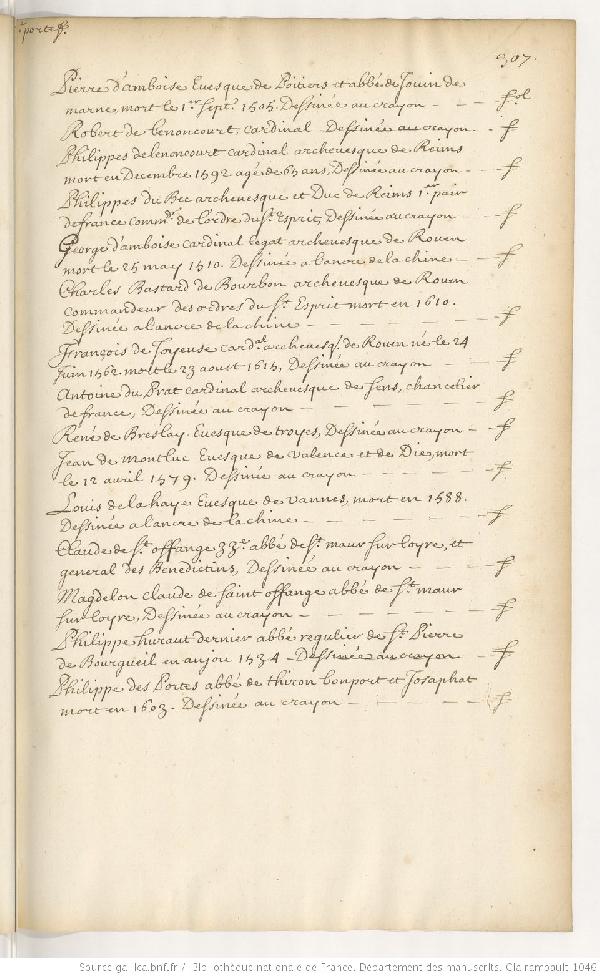 portef.
307.
Pierre d'amboise Euesque de Poitiers et abbé de Jouin de
marne, mort le 1.er Sept.e 1505. Dessinée au crayon - - - f.ol
Robert de Lenoncourt cardinal Dessinée au crayon - f
Philippes de lenoncourt cardinal archeuesque de Reims
mort en Decembre 1592 agé de 65 ans, Dessinée au crayon - f
Philippes du Bec archeuesque et Duc de Reims 1.er pair
de france comm.r de l'ordre du s.t Esprit, Dessinée au crayon - f
George d'amboise cardinal legat archeuesque de Rouen
mort le 25 may 1510. Dessinée a l'ancre de la chine - f
Charles Bastard de Bourbon archeuesque de Rouen
commandeur des ordres du S.t Esprit mort en 1610.
Dessinée a l'ancre de la chine - - - - f
François de Joyeuse card.al archeuesq. de Rouen né le 24
Juin 1562 mort le 23 aoust 1615, Dessinée au crayon - f
Antoine du Prat cardinal archeuesque de sens, chancelier
de france, Dessinée au crayon - - - - f
René de Breslay Euesque de troyes, Dessinée au crayon - f
Jean de montluc Euesque de valence et de Die, mort
le 12 avril 1579. Dessinée au crayon - - - f
Louis de la haye Euesque de vannes, mort en 1588.
Dessinée a l'ancre de la chine - - - - f
Claude de S.t offange 33.e abbé de S.t maur sur loyre, et
general des Benedictins, Dessinée au crayon - - f
Magdelon claude de saint offange abbé de S.t maur
sur loyre, Dessinée au crayon - - - - f
Philippe huraut dernier abbé regulier de S.t Pierre
de Bourgueil en anjou 1534 - Dessinée au crayon - f
Philippe des Portes abbé de thiron bonport et Josaphat
mort en 1603. Dessinée au crayon - - - - f
Source gallica.bnf.fr / Bibliothèque nationale de France. Département des manuscrits. Clairambault 1046